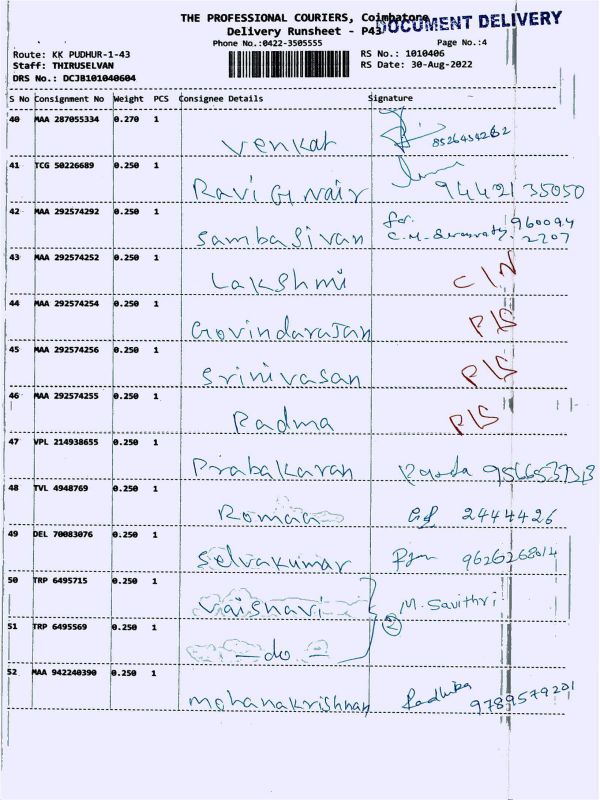 THE PROFESSIONAL COURIERS, Coimbatore
DOCUMENT DELIVERY
Delivery Runsheet - P43
Phone No.:0422-3505555
Page No.:4
Route: KK PUDHUR-1-43
RS No.: 1010406
Staff: THIRUSELVAN
RS Date: 30-Aug-2022
DRS No.: DCJB101040604
S No Consignment No Weight PCS Consignee Details Signature
40 MAA 287055334 0.270 1
Venkat
41 TCG 50226689 0.250 1
Ravi G Nair 94421 35050
42 MAA 292574292 0.250 1
for. 960094
Sambasivan C.M. 2207
43 MAA 292574252 0.250 1
Lakshmi C/N
44 MAA 292574254 0.250 1
Govindarajan P/S
45 MAA 292574256 0.250 1
Srinivasan P/S
46 MAA 292574255 0.250 1
Padma P/S
47 VPL 214938655 0.250 1
Prabakaran
48 TVL 4948769 0.250 1
Romaa 2444426
49 DEL 70083076 0.250 1
Selvakumar 9626268014
50 TRP 6495715 0.250 1
Vaishnavi M. Savithri
51 TRP 6495569 0.250 1
2
- do -
52 MAA 942240390 0.250 1
Mohanakrishnan Radhika 9789579201